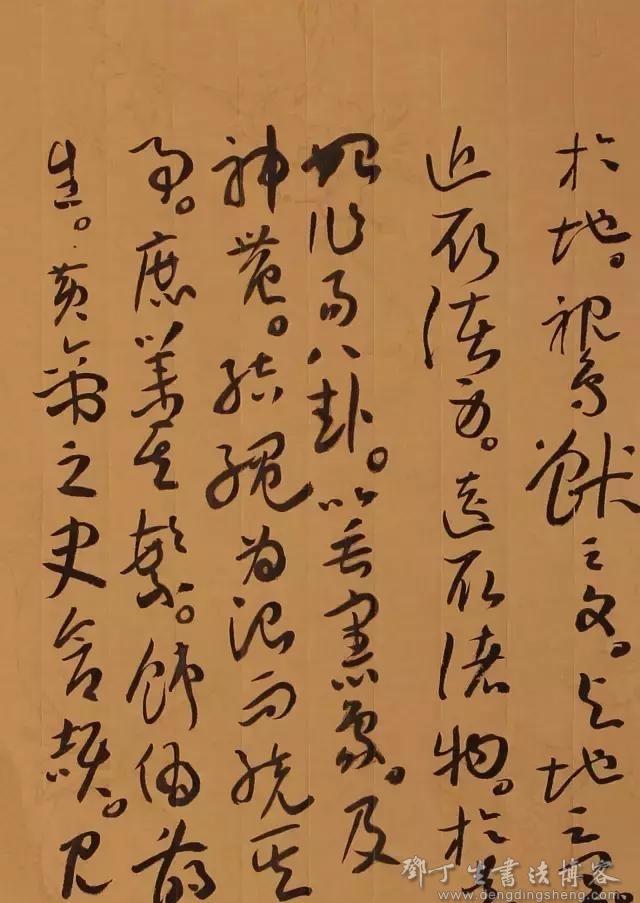 於地。視鳥獸之文。與地之宜
近取諸身。遠取諸物。於是
始作易八卦。以垂憲象。及
神農。結繩為治而統其
事。庶業其繁。飾偽萌
生。黃帝之史倉頡。見
鄧丁生書法博客
www.dengdingsheng.com